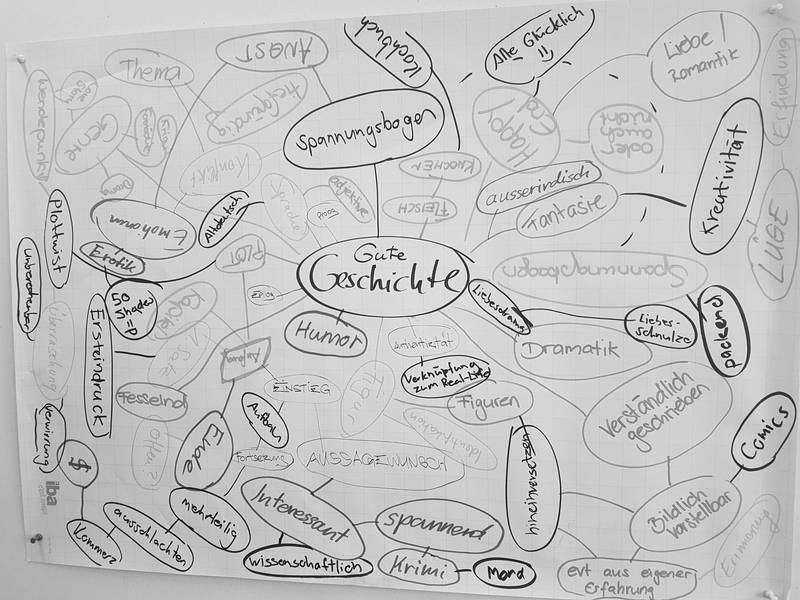 ANGST
Kochbuch
Alle Glücklich
Liebe /
Romantik
Erfindung
Thema
tiefgründig
Wendepunkt
Genre
Krieg
Drama
Konflikt
Spannungsbogen
Happy
End
oder
auch
nicht
Kreativität
KNOCHEN
FLEISCH
Sprache
Adjektive
Prosa
ausserirdisch
Fantasie
LÜGE
Plottwist
Emotionen
Altdeutsch
Erotik
PLOT
Gute
GESCHICHTE
Spannungsbogen
unvorhersehbar
50
Shades
=D
Liebesdrama
Liebes-
schnulze
packend
Überraschung
Ersteindruck
Humor
Authentizität
Dramatik
Verknüpfung
zum Real-Life
Anfang
EINSTIEG
Fesselnd
Figuren
Verständlich
geschrieben
Aufbau
Identifikation
Comics
Verwirrung
Offen?
Ende
Fortsetzung
AUSSAGEWUNSCH
hineinversetzen
$
Interessant
spannend
Bildlich
vorstellbar
Erinnerung
iba
Kommerz
ausschlachten
mehrteilig
wissenschaftlich
Krimi
Mord
evt aus eigener
Erfahrung